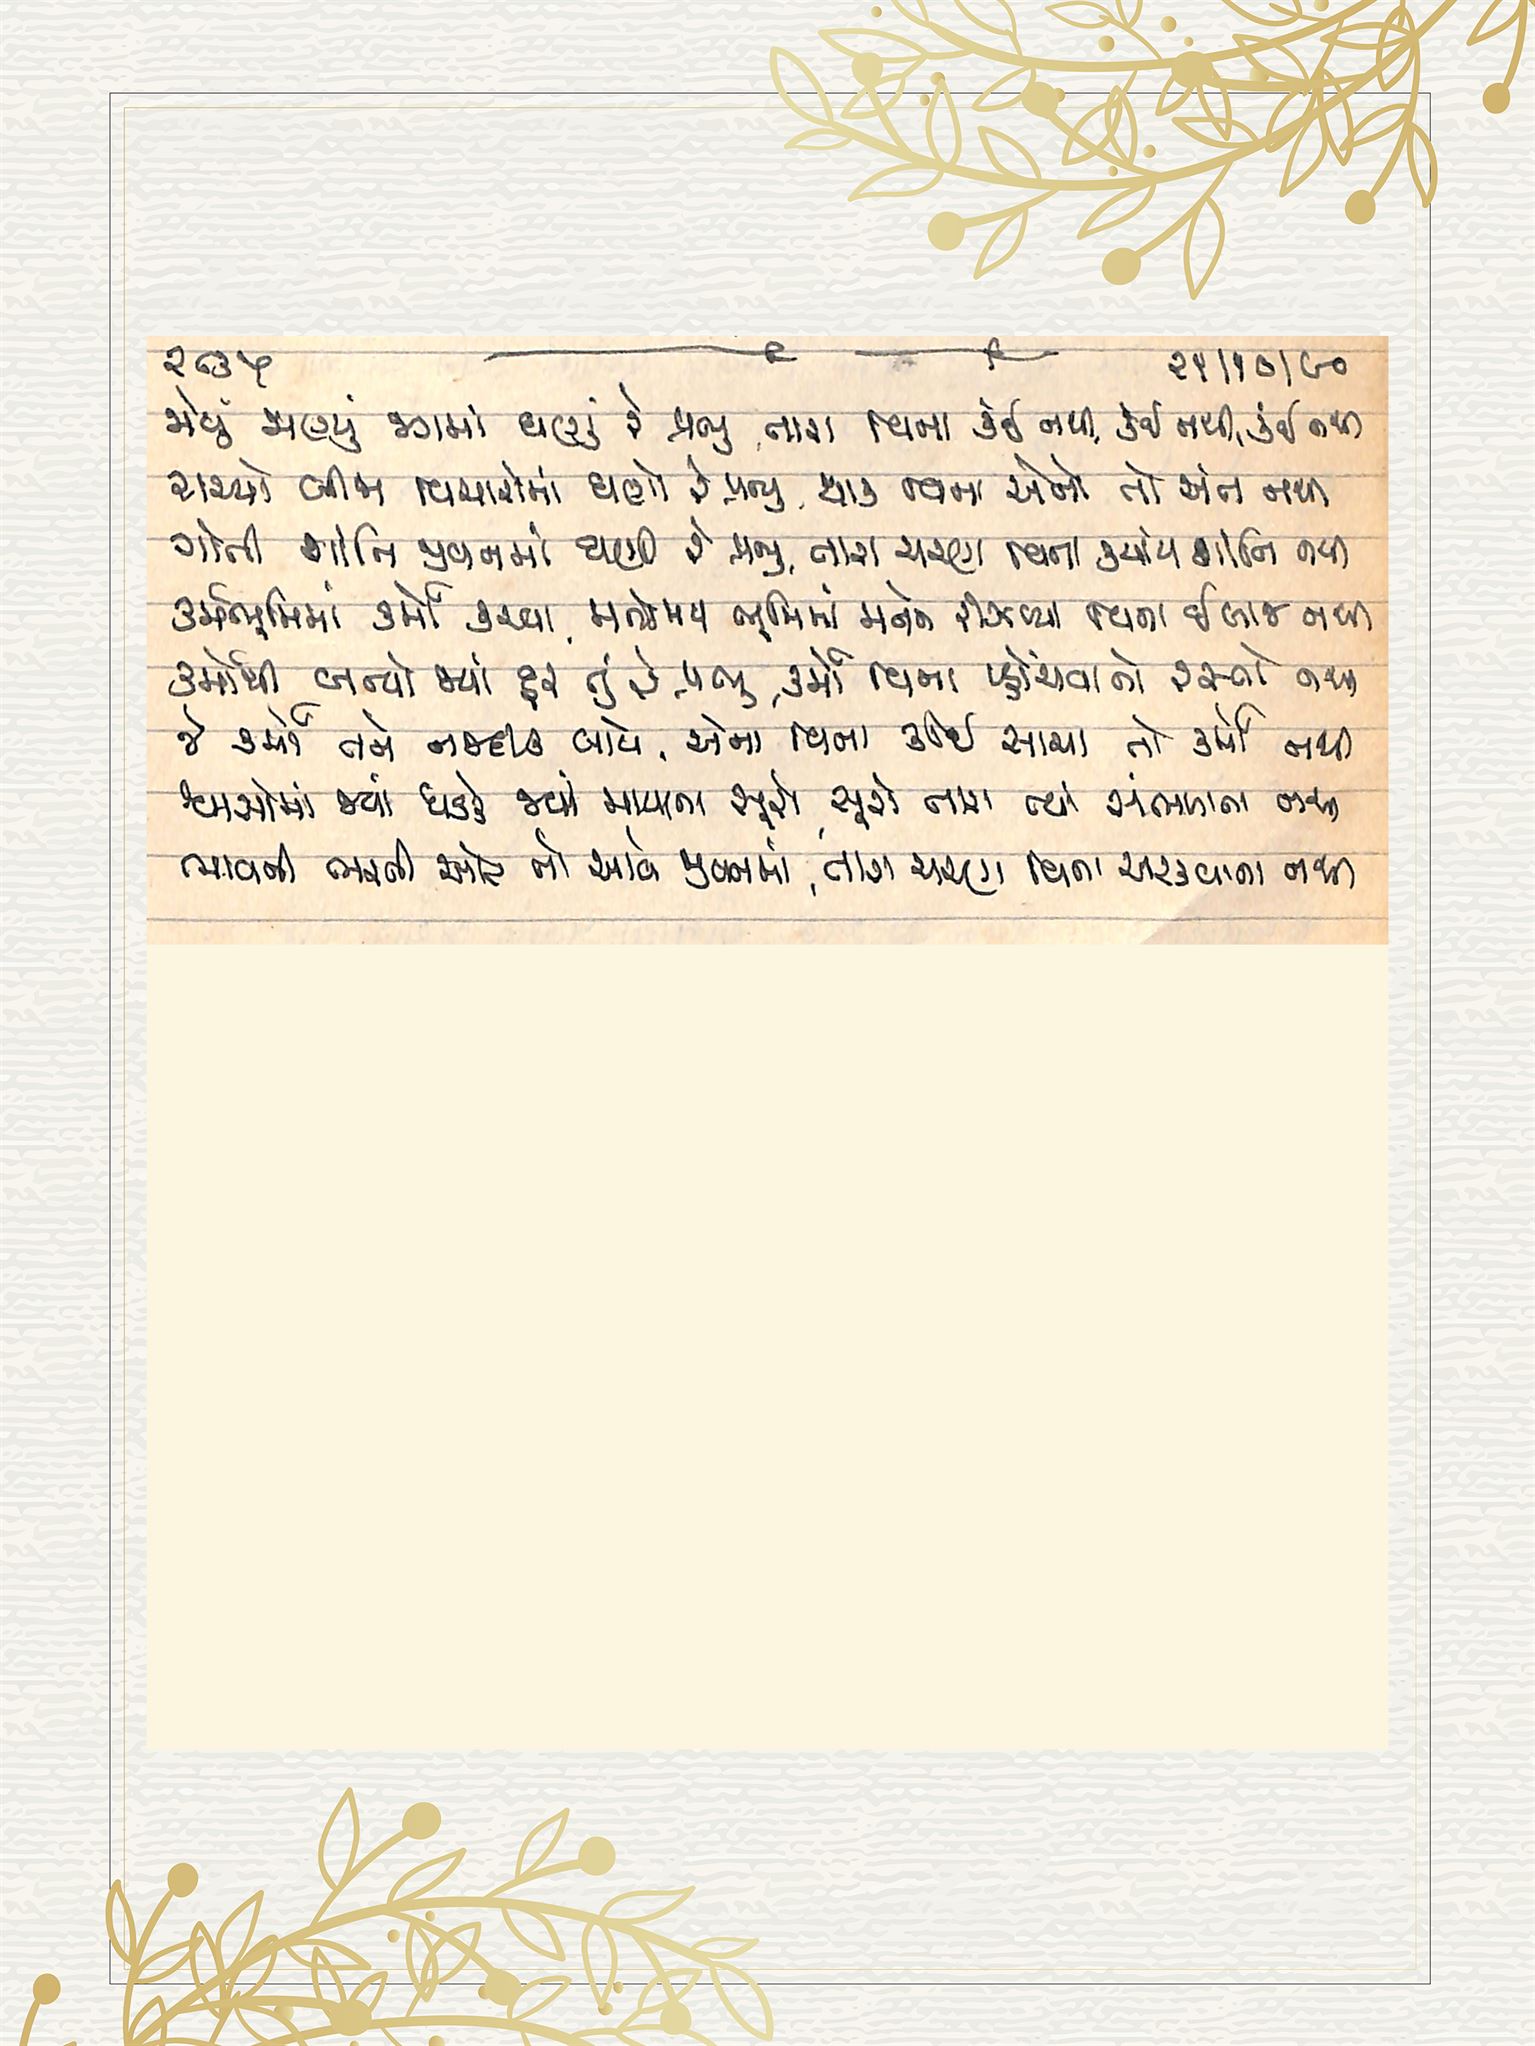 ૨૦૩૫ ૨૧/૧૦/૯૦
જોયું જાણ્યું જગમાં ઘણું રે પ્રભુ, તારા વિના કંઈ નથી, કંઈ નથી, કંઈ નથી
રાચ્યો બીજા વિચારોમાં ઘણો રે પ્રભુ, થાક વિના એનો તો અંત નથી
ગોતી શાંતિ જીવનમાં ઘણી રે પ્રભુ, તારા ચરણ વિના ક્યાંય શાંતિ નથી
કર્મભૂમિમાં કર્મો કરવા, મનોમય ભૂમિમાં મનને રીઝવ્યા વિના ઈલાજ નથી
કર્મોથી બન્યો જ્યાં દૂર તું રે પ્રભુ, કર્મો વિના પ્હોંચવાનો રસ્તો નથી
જે કર્મો તને નજદીક લાવે, એના વિના કોઈ સાચા તો કર્મો નથી
શ્વાસોમાં જ્યાં ધડકે જ્યાં માયાના સૂરો, સૂરો તારા ત્યાં સંભળાતા નથી
ભાવની ભરતી ઓટ તો આવે જીવનમાં, તારા ચરણ વિના અટકવાના નથી